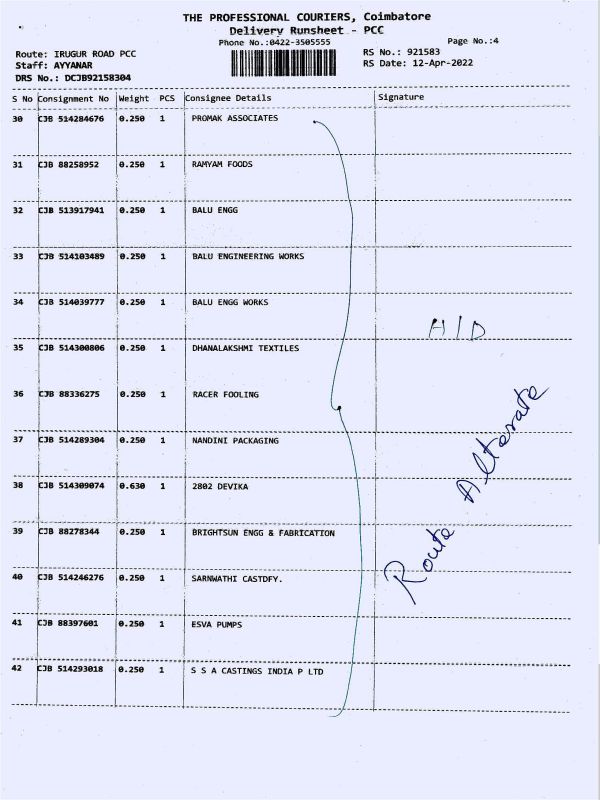 THE PROFESSIONAL COURIERS, Coimbatore
Delivery Runsheet - PCC
Phone No.:0422-3505555 Page No.:4
Route: IRUGUR ROAD PCC RS No.: 921583
Staff: AYYANAR RS Date: 12-Apr-2022
DRS No.: DCJB92158304
S No Consignment No Weight PCS Consignee Details Signature
30 CJB 514284676 0.250 1 PROMAK ASSOCIATES
31 CJB 88258952 0.250 1 RAMYAM FOODS
32 CJB 513917941 0.250 1 BALU ENGG
33 CJB 514103489 0.250 1 BALU ENGINEERING WORKS
34 CJB 514039777 0.250 1 BALU ENGG WORKS
A/D
35 CJB 514300806 0.250 1 DHANALAKSHMI TEXTILES
36 CJB 88336275 0.250 1 RACER FOOLING
37 CJB 514289304 0.250 1 NANDINI PACKAGING
38 CJB 514309074 0.630 1 2802 DEVIKA
39 CJB 88278344 0.250 1 BRIGHTSUN ENGG & FABRICATION
Route Alterate
40 CJB 514246276 0.250 1 SARNWATHI CASTDFY.
41 CJB 88397601 0.250 1 ESVA PUMPS
42 CJB 514293018 0.250 1 S S A CASTINGS INDIA P LTD